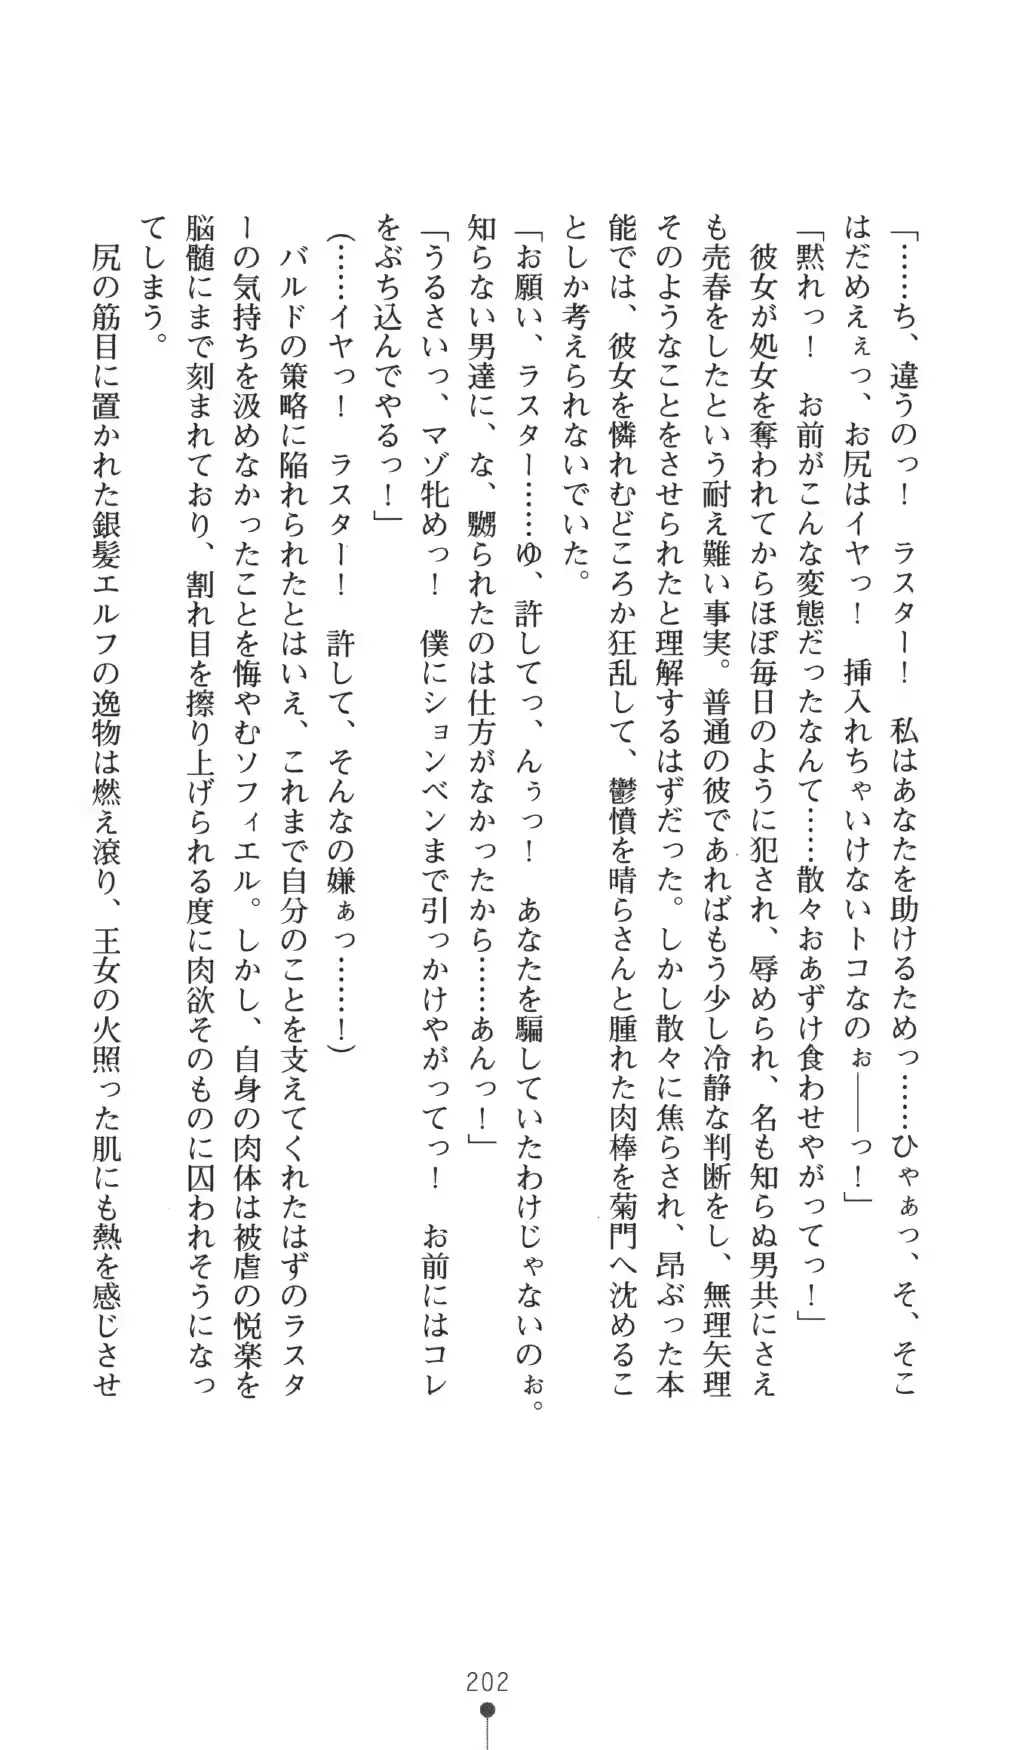 「……ち、違うのっ!　ラスター!　私はあなたを助けるためっ……ひゃぁっ、そ、そこ
はだめえぇっ、お尻はイヤっ!　挿入れちゃいけないトコなのぉ――っ!」
「黙れっ!　お前がこんな変態だったなんて……散々おあずけ食わせやがってっ!」
　彼女が処女を奪われてからほぼ毎日のように犯され、辱められ、名も知らぬ男共にさえ
も売春をしたという耐え難い事実。普通の彼であればもう少し冷静な判断をし、無理矢理
そのようなことをさせられたと理解するはずだった。しかし散々に焦らされ、昂ぶった本
能では、彼女を憐れむどころか狂乱して、鬱憤を晴らさんと腫れた肉棒を菊門へ沈めるこ
としか考えられないでいた。
「お願い、ラスター……ゆ、許してっ、んぅっ!　あなたを騙していたわけじゃないのぉ。
知らない男達に、な、嬲られたのは仕方がなかったから……あんっ!」
「うるさいっ、マゾ牝めっ!　僕にションベンまで引っかけやがってっ!　お前にはコレ
をぶち込んでやるっ!」
(……イヤっ!　ラスター!　許して、そんなの嫌ぁっ……!)
　バルドの策略に陥れられたとはいえ、これまで自分のことを支えてくれたはずのラスタ
ーの気持ちを汲めなかったことを悔やむソフィエル。しかし、自身の肉体は被虐の悦楽を
脳髄にまで刻まれており、割れ目を擦り上げられる度に肉欲そのものに囚われそうになっ
てしまう。
　尻の筋目に置かれた銀髪エルフの逸物は燃え滾り、王女の火照った肌にも熱を感じさせ
202